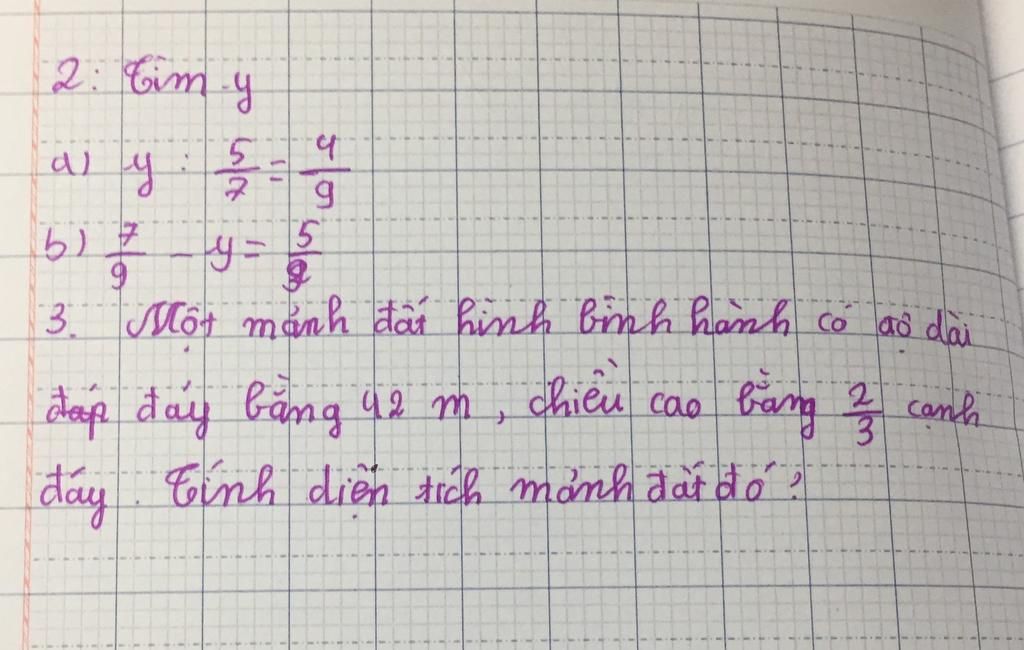 2: Tìm y
a) y : 5/7 = 4/9
b) 7/9 - y = 5/9
3. Một mảnh đất hình bình hành có độ dài
đáy bằng 42 m, chiều cao bằng 2/3 cạnh
đáy. Tính diện tích mảnh đất đó?